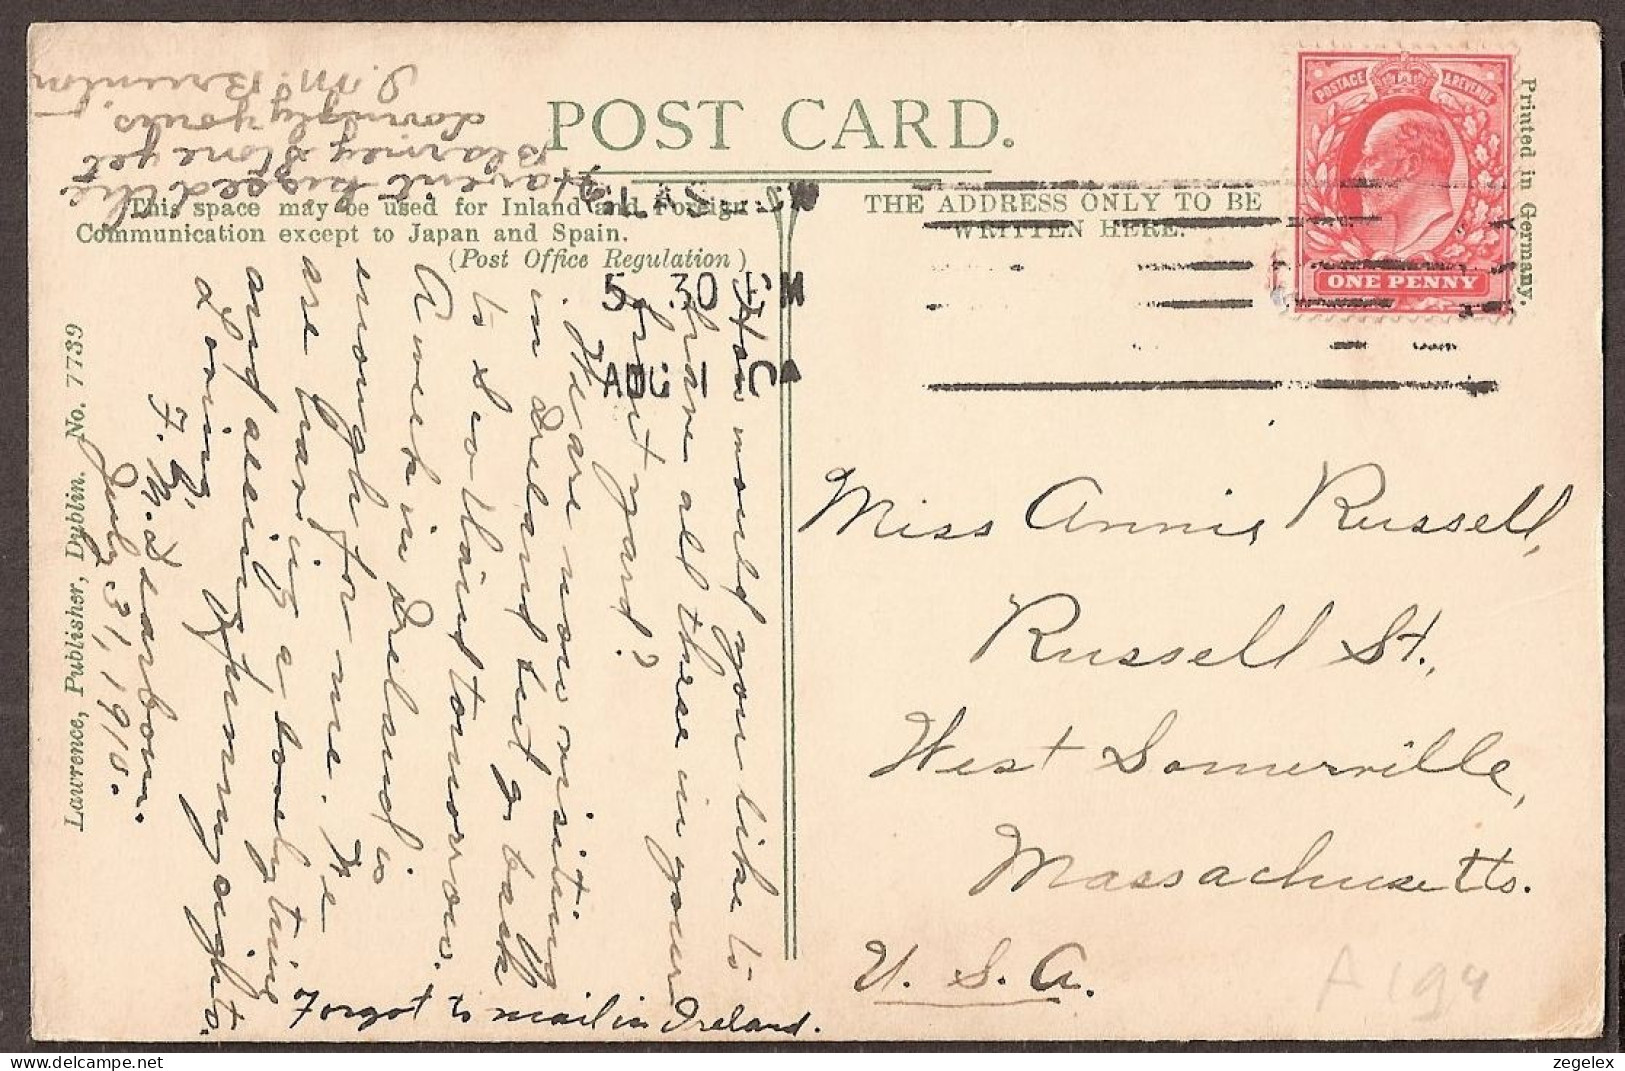 POST CARD.
Printed in Germany.
POSTAGE & REVENUE
ONE PENNY
This space may be used for Inland and Foreign
Communication except to Japan and Spain.
(Post Office Regulation)
THE ADDRESS ONLY TO BE
WRITTEN HERE.
5 30 PM
AUG 1
Lawrence, Publisher, Dublin. No. 7739
How would you like to
have all these in your
front yard?
We are now visiting
in Ireland but go back
to Scotland tomorrow.
A week in Ireland is
enough for me. We
are having a lovely time
and seeing funny sights.
Loving
F. E.
M. Dearborn.
July 31, 1910.
Forgot to mail in Ireland.
Havent kissed the
Blarney Stone yet
Lovingly yours,
Miss Annie Russell,
Russell St.,
West Somerville,
Massachusetts.
U. S. A.
A 194
zegelex